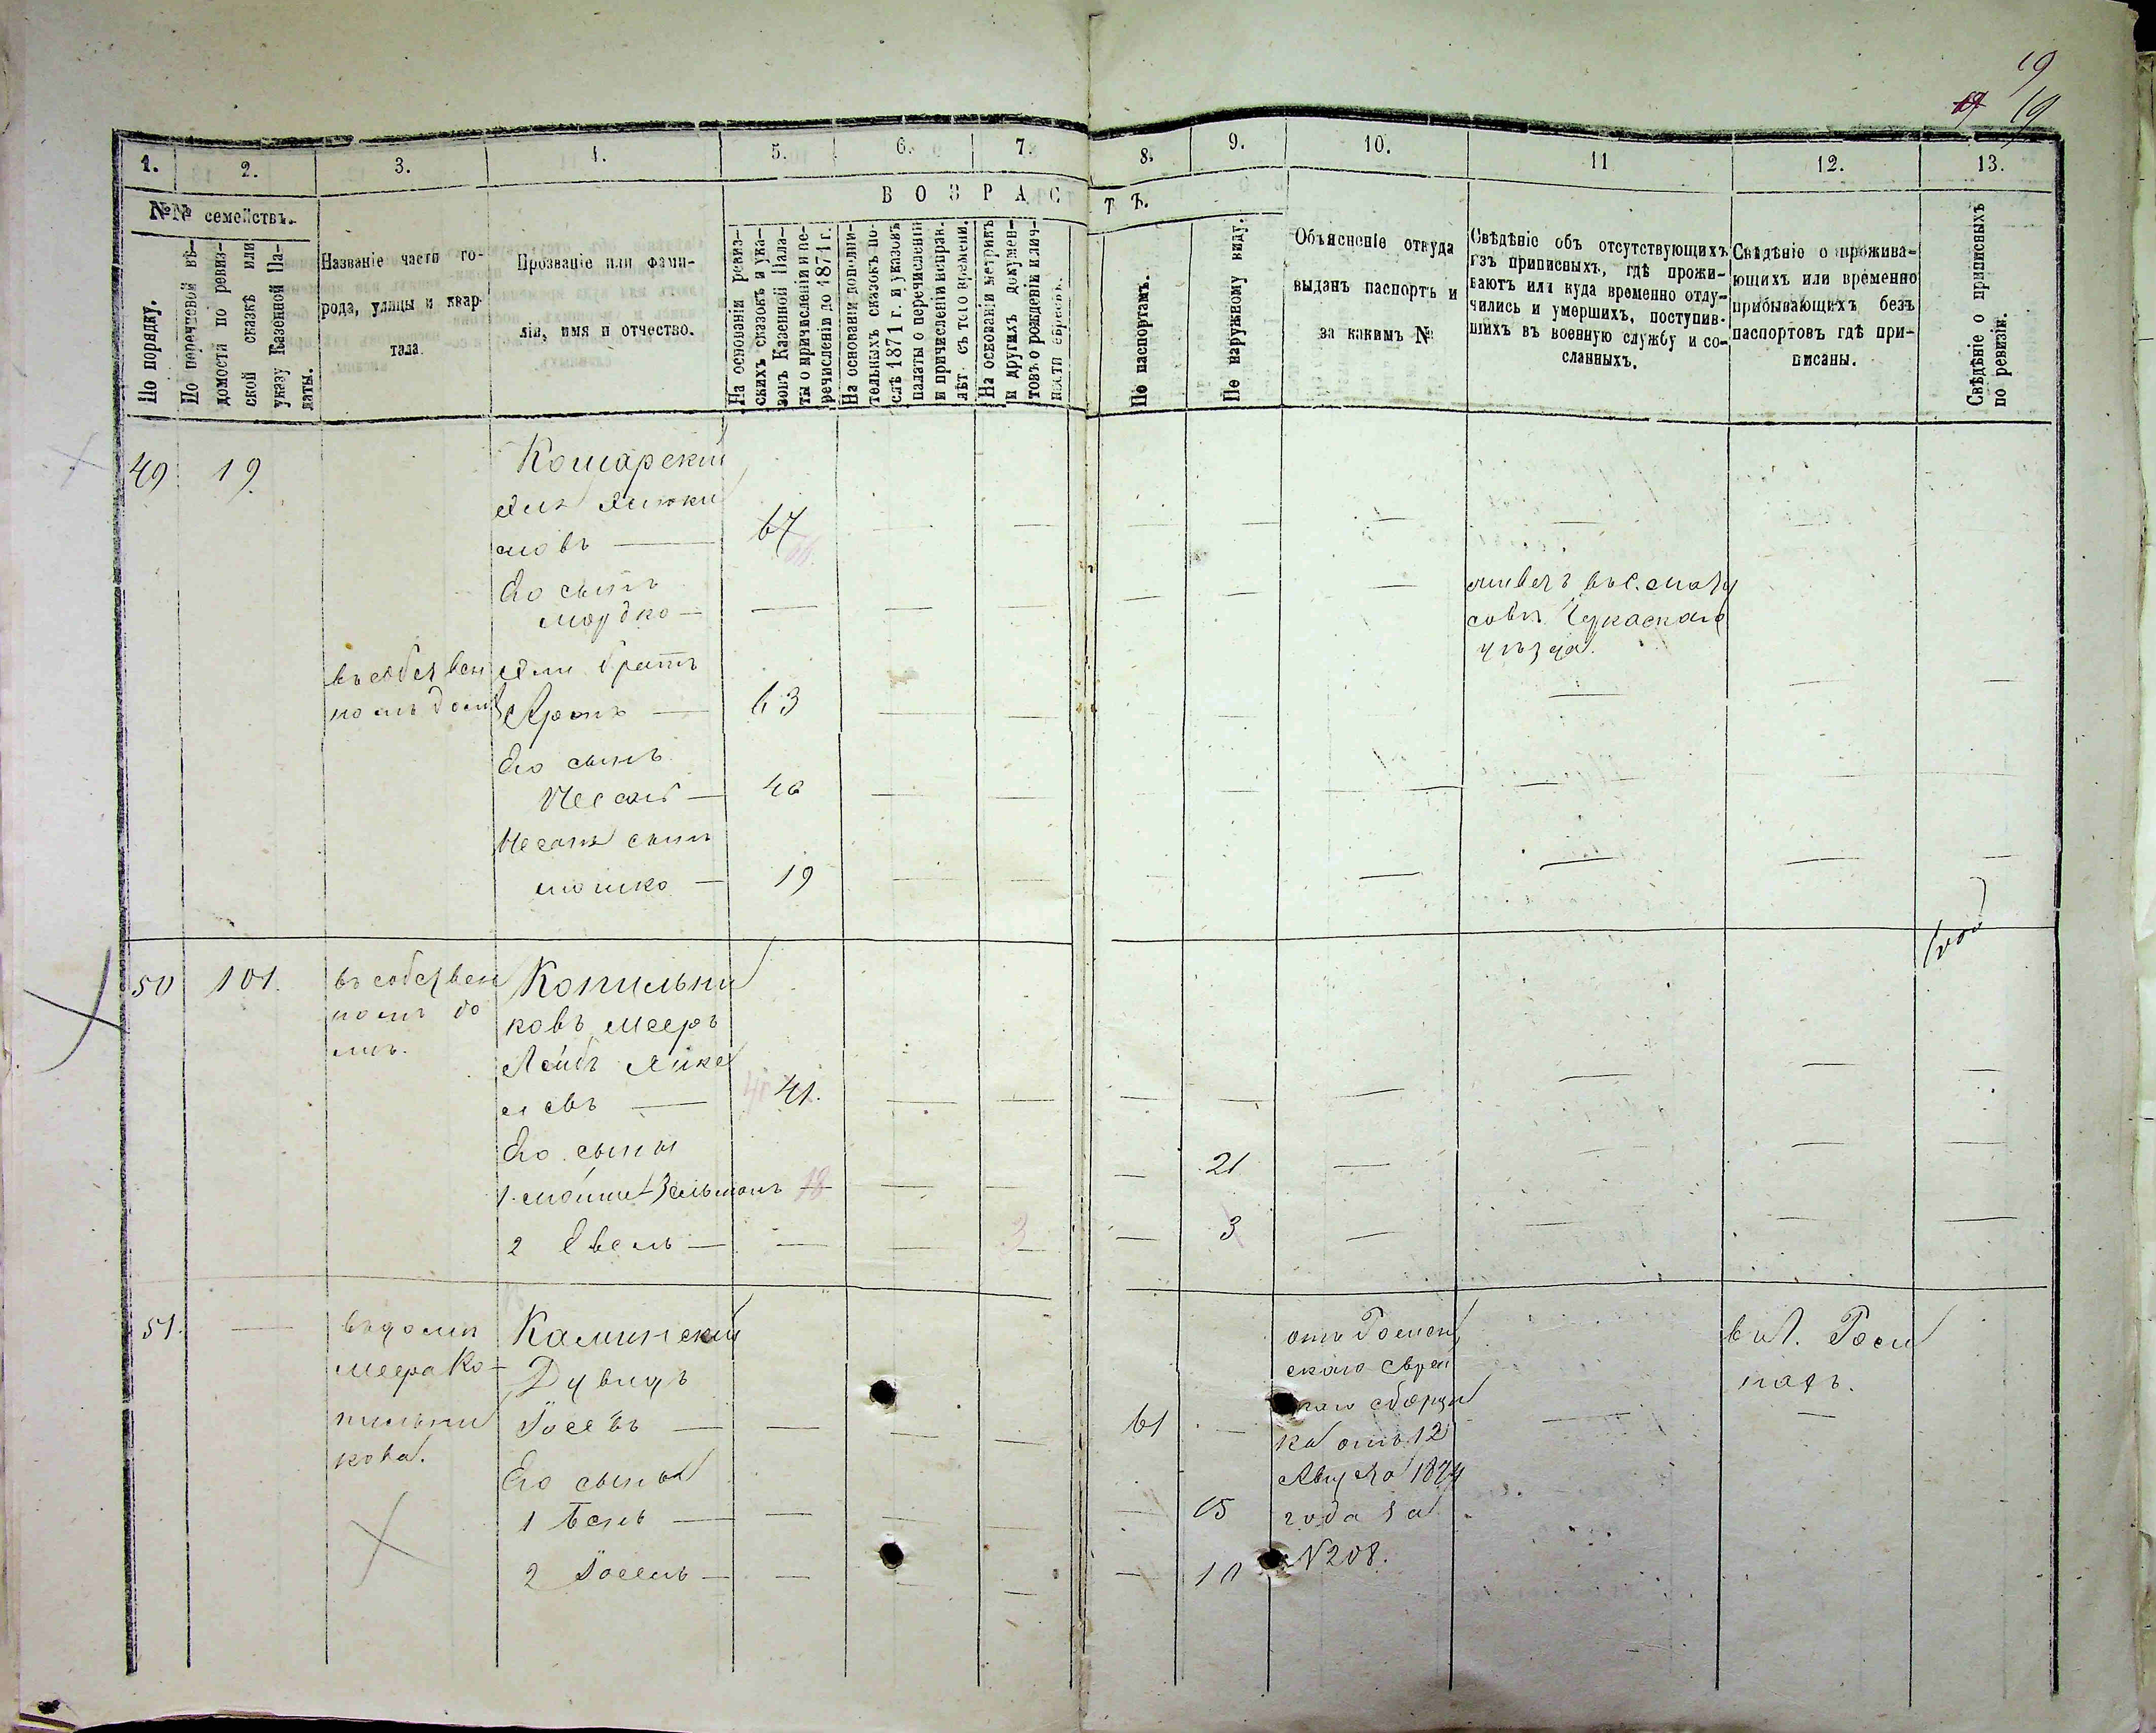 19
19 19
1. 2. 3. 4. 5. 6. 7. 8. 9. 10. 11 12. 13.
№№ семействъ.
По порядку.
По перечневой вѣ-
домости по ревиз-
ской сказкѣ или
указу Казенной Па-
латы.
Названіе части го-
рода, улицы и квар-
тала.
Прозваніе или фами-
лія, имя и отчество.
ВОЗРАСТЪ.
На основаніи ревиз-
скихъ сказокъ и ука-
зовъ Казенной Пала-
ты о причисленіи и пе-
речисленіи до 1871 г.
На основаніи дополни-
тельныхъ сказокъ по-
слѣ 1871 г. и указовъ
палаты о перечисленіи
и причисленіи исправ.
лѣт. съ того времени.
На основаніи метрикъ
и другихъ докумен-
товъ о рожденіи и лич-
ности евреевъ.
По паспортамъ.
По наружному виду.
Объясненіе откуда
выданъ паспортъ и
за какимъ №
Свѣдѣніе объ отсутствующихъ
изъ приписныхъ, гдѣ прожи-
ваютъ или куда временно отлу-
чились и умершихъ, поступив-
шихъ въ военную службу и со-
сланныхъ.
Свѣдѣніе о прожива-
ющихъ или временно
прибывающихъ безъ
паспортовъ гдѣ при-
писаны.
Свѣдѣніе о приписныхъ
по ревизіи.
49 19. Кошарскій
мовъ — 67
Его сынъ
Мордко —
живетъ въ с.
Черкаскаго
уѣзда.
въ собствен
номъ дом
братъ
Аронъ — 63
Его сынъ
40
сынъ
Мошко — 19
50 101. въ собствен
номъ до
мѣ.
Копильни
ковъ Мееръ
Лейбъ Янке
левъ — 41 41.
Его сыны
1. Мойше Зельманъ 18 21
2 — 3 3
51. — въ домѣ
Меера Ко-
пильни
кова.
Каминскій
Дувидъ
Іосевъ — 61
Его сыны
1 — 15
2 Іосель — 10
отъ
скаго еврей
скаго сборщи
ка отъ 12
Августа 1874
года за
№208.